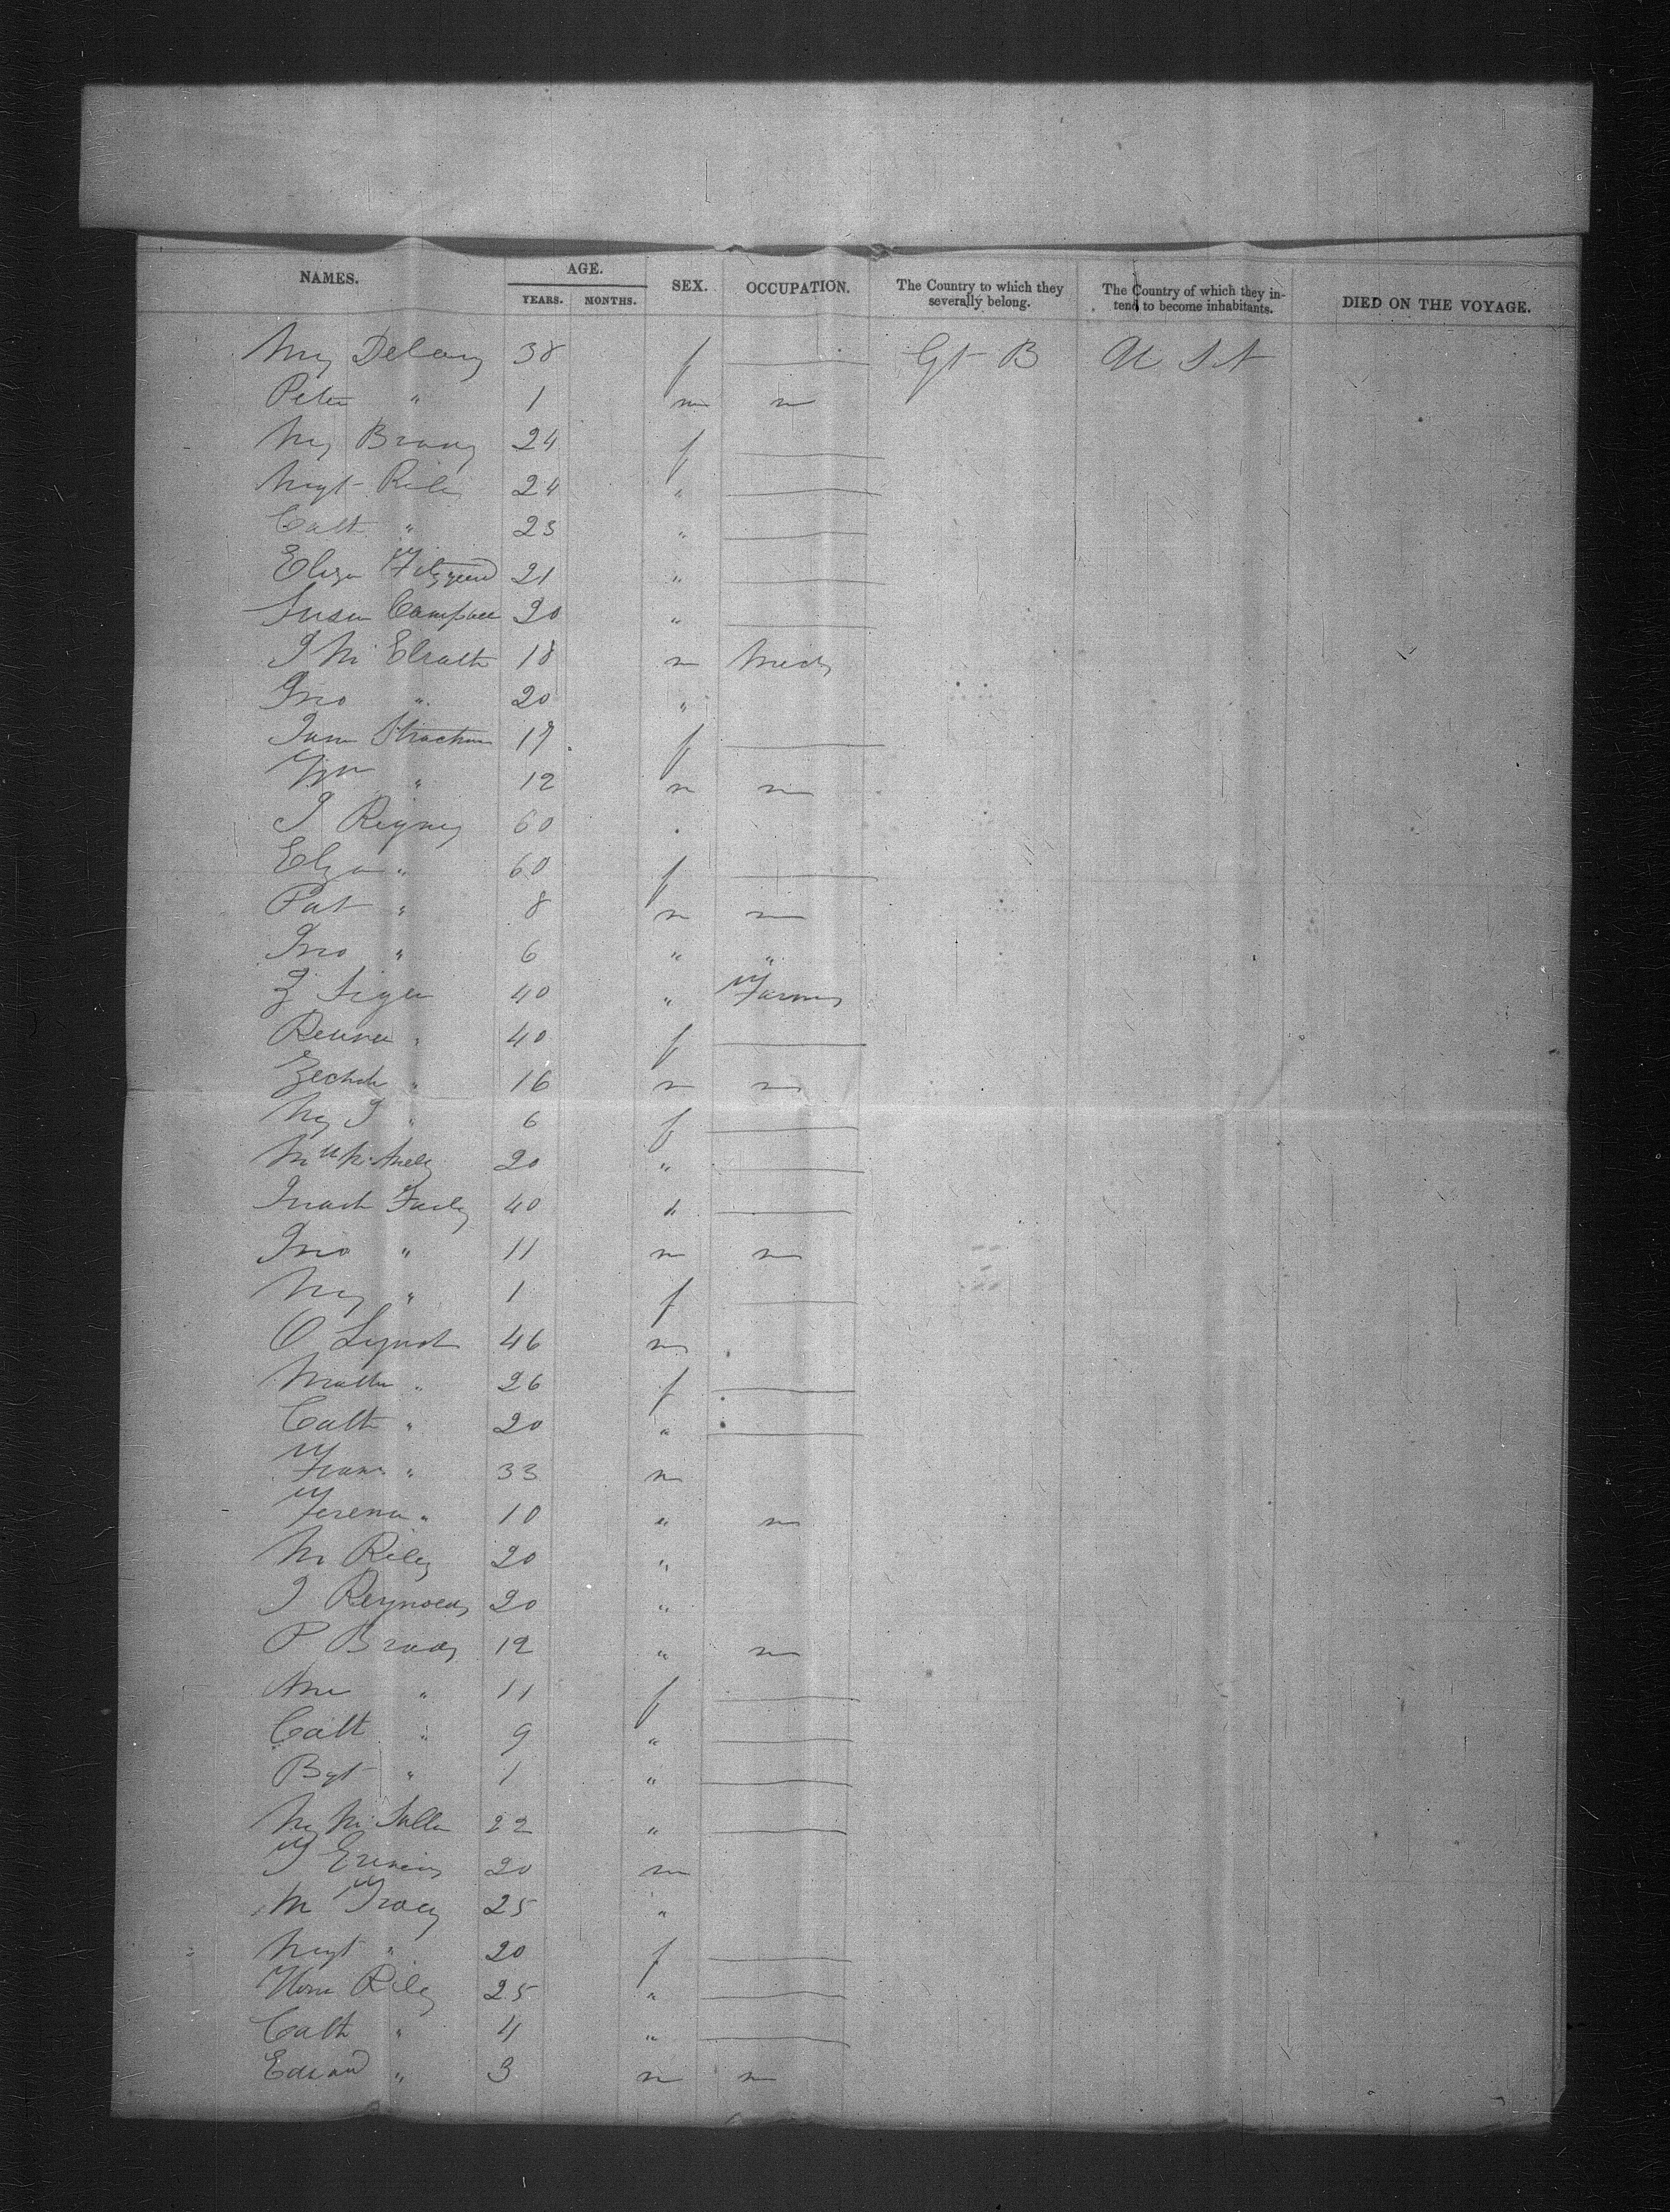 NAMES. AGE. SEX. OCCUPATION. The Country to which they severally belong. The Country of which they intend to become inhabitants. DIED ON THE VOYAGE.
YEARS. MONTHS.
My Delany 38 f — Gt B U S A
Peter " 1 m
My Brady 24 f —
Mgt Riley 24 " —
Cath " 23 " —
Eliza Fitzgerd 21 " —
Susan Campbell 20 " —
J Mc Elrath 18 m Mech
Jno " 20 "
Jane Strachan 17 f —
Wm " 12 m
J Rigney 60
Eliza " 60 f —
Pat " 8 m
Jno " 6 " "
Z 40 " Farmer
40 f —
Zechh " 16 m
My J " 6 f —
20 " —
Farly 40 " —
Jno " 11 m
My " 1 f —
O Lynch 46 m
" 26 f —
Cath " 20 " —
" 33 m
" 10 "
M Riley 20 "
J Reynolds 20 "
P Brady 12 "
Ann " 11 f —
Cath " 9 " —
Bgt " 1 " —
My 22 " —
20 m
M Tracy 25 "
Mgt " 20 f —
Riley 25 " —
Cath " 4 " —
Edward " 3 m